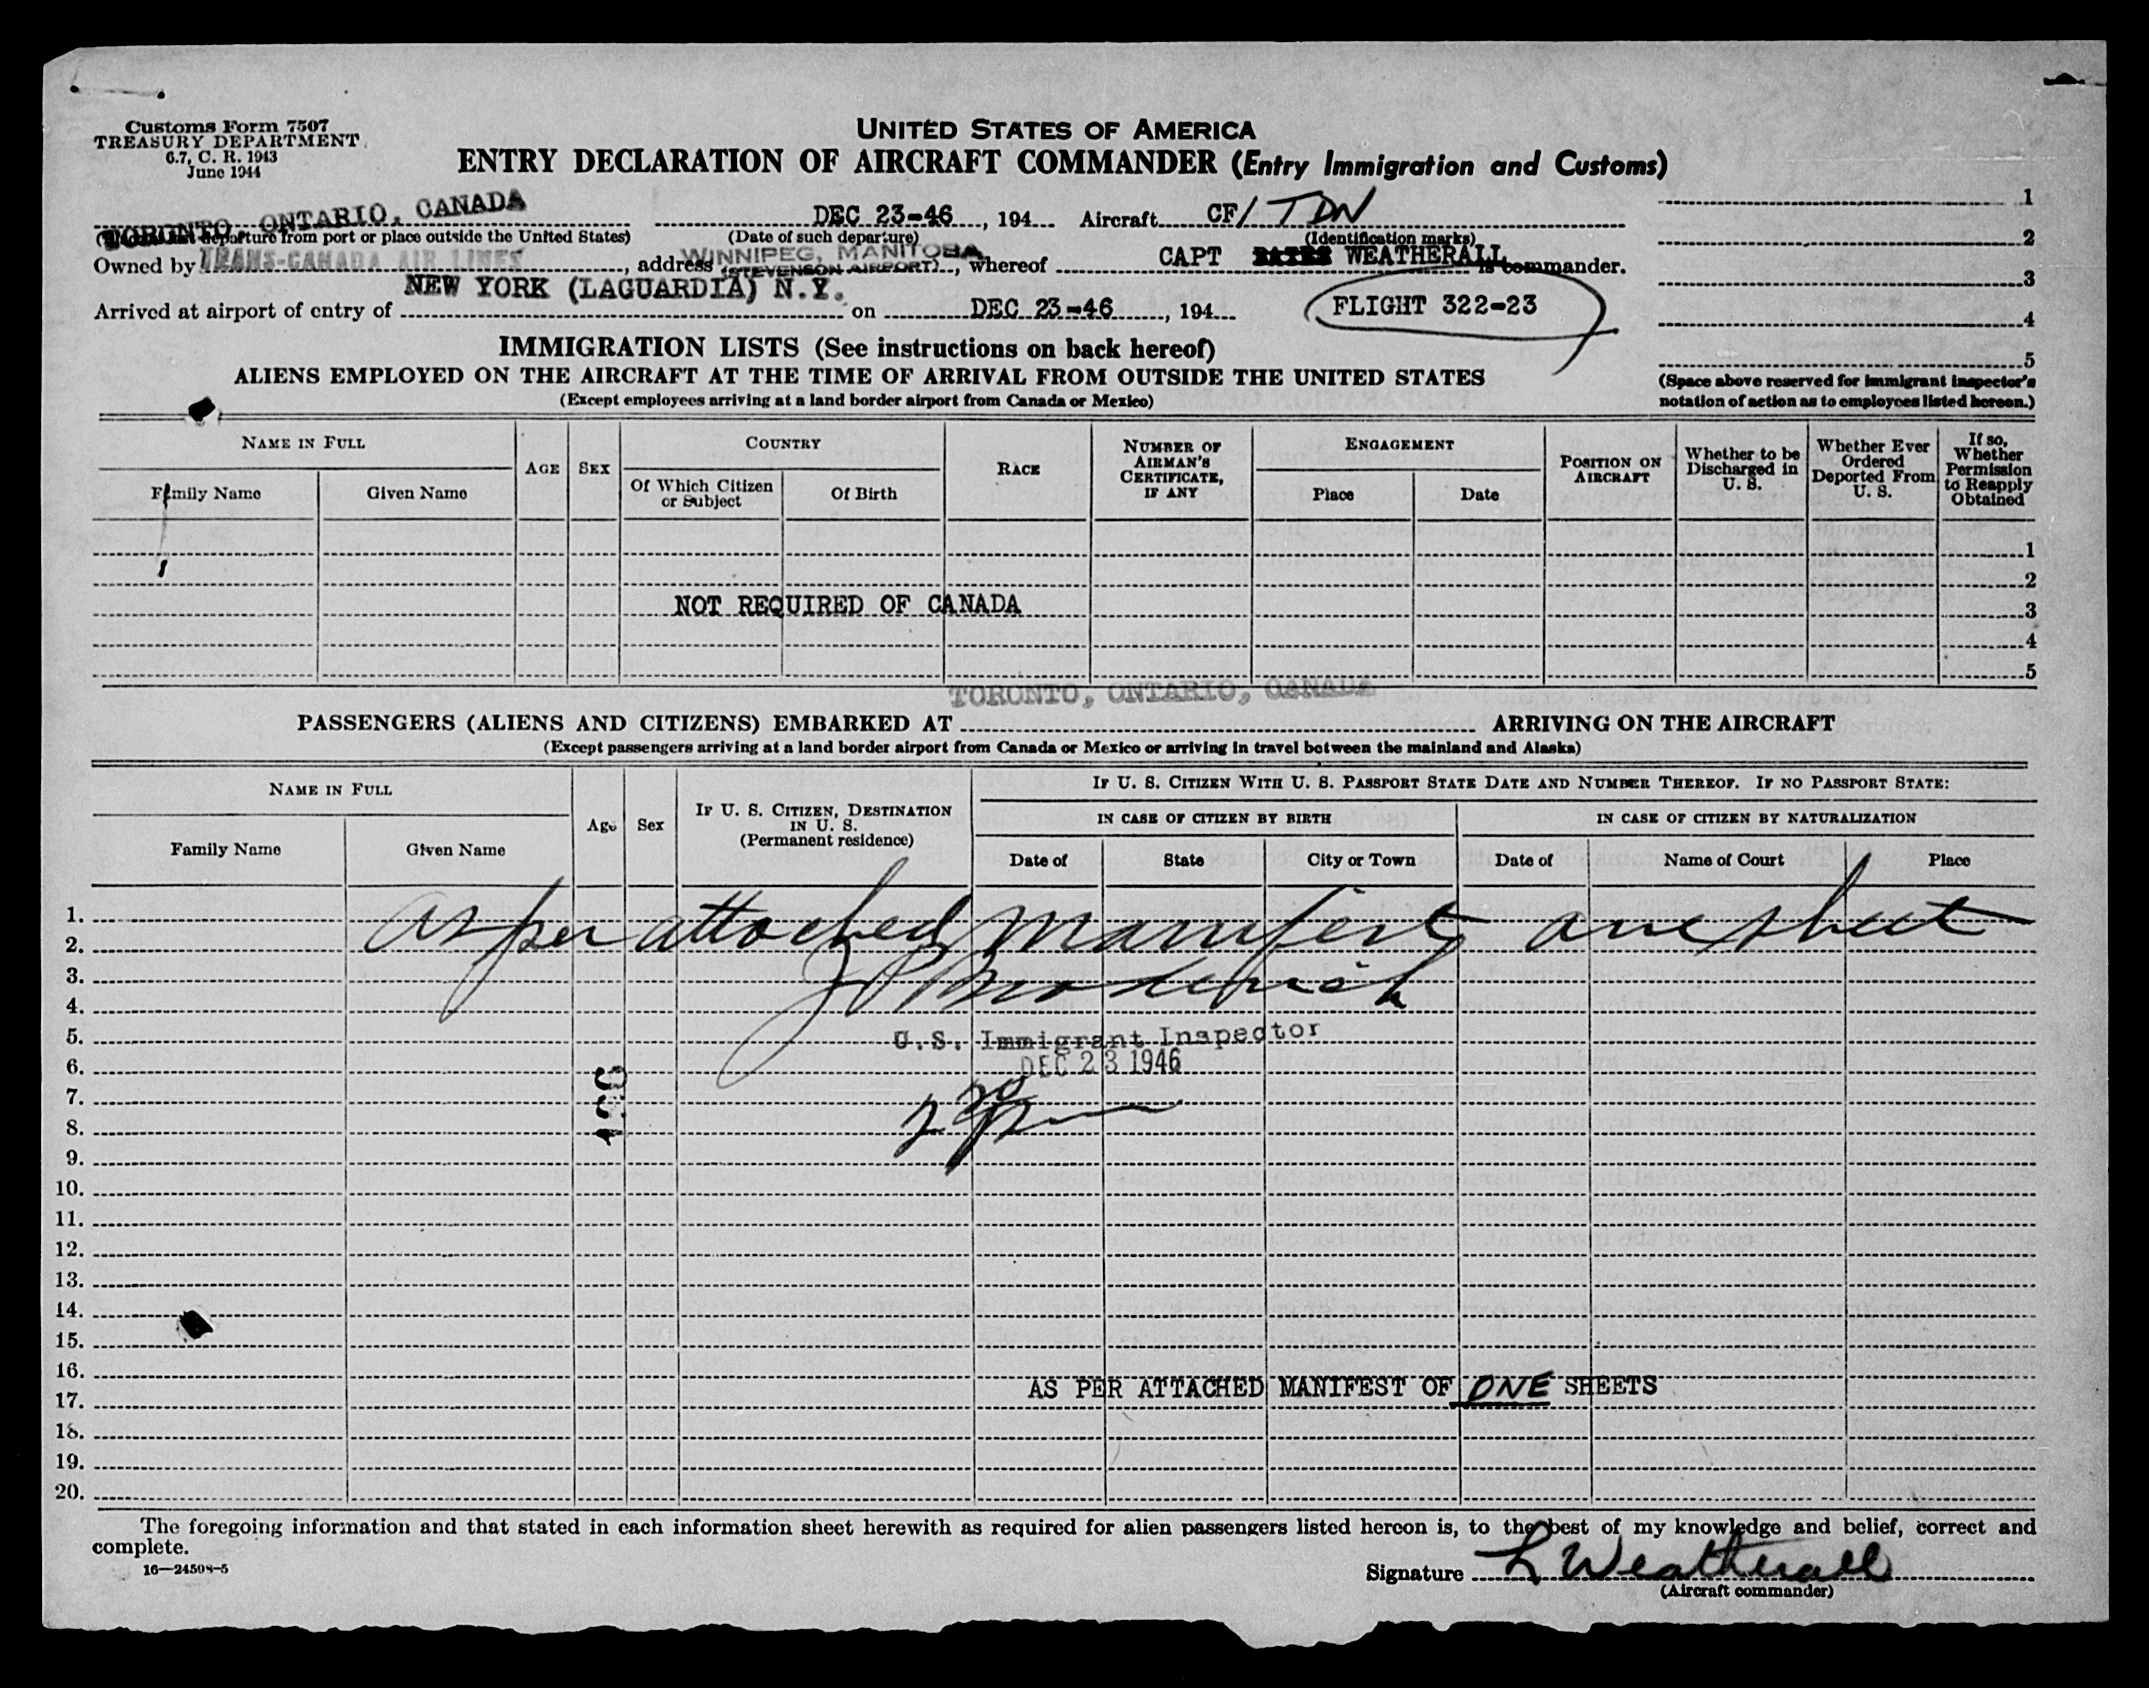 Customs Form 7507
TREASURY DEPARTMENT
6.7, C. R. 1943
June 1944
UNITED STATES OF AMERICA
ENTRY DECLARATION OF AIRCRAFT COMMANDER (Entry Immigration and Customs)
TORONTO, ONTARIO, CANADA DEC 23-46, 194 Aircraft CF/ TDN
departure from port or place outside the United States) (Date of such departure) (Identification marks)
Owned by TRANS-CANADA AIR LINES, address WINNIPEG, MANITOBA (STEVENSON AIRPORT), whereof CAPT WEATHERALL is commander.
Arrived at airport of entry of NEW YORK (LAGUARDIA) N.Y. on DEC 23-46, 194
FLIGHT 322-23
1
2
3
4
5
(Space above reserved for immigrant inspector's
notation of action as to employees listed hereon.)
IMMIGRATION LISTS (See instructions on back hereof)
ALIENS EMPLOYED ON THE AIRCRAFT AT THE TIME OF ARRIVAL FROM OUTSIDE THE UNITED STATES
(Except employees arriving at a land border airport from Canada or Mexico)
NAME IN FULL
Family Name Given Name
AGE
SEX
COUNTRY
Of Which Citizen or Subject Of Birth
RACE
NUMBER OF AIRMAN'S CERTIFICATE, IF ANY
ENGAGEMENT
Place Date
POSITION ON AIRCRAFT
Whether to be Discharged in U. S.
Whether Ever Ordered Deported From U. S.
If so, Whether Permission to Reapply Obtained
1
2
NOT REQUIRED OF CANADA 3
4
5
TORONTO, ONTARIO, CANADA
PASSENGERS (ALIENS AND CITIZENS) EMBARKED AT ARRIVING ON THE AIRCRAFT
(Except passengers arriving at a land border airport from Canada or Mexico or arriving in travel between the mainland and Alaska)
NAME IN FULL
Family Name Given Name
Age
Sex
IF U. S. CITIZEN, DESTINATION IN U. S.
(Permanent residence)
IF U. S. CITIZEN WITH U. S. PASSPORT STATE DATE AND NUMBER THEREOF. IF NO PASSPORT STATE:
IN CASE OF CITIZEN BY BIRTH IN CASE OF CITIZEN BY NATURALIZATION
Date of State City or Town Date of Name of Court Place
1.
2. as per attached manifest one sheet
3.
4.
5. U.S. Immigrant Inspector
6. DEC 23 1946
7.
8.
9.
10.
11.
12.
13.
14.
15.
16.
17. AS PER ATTACHED MANIFEST OF ONE SHEETS
18.
19.
20.
The foregoing information and that stated in each information sheet herewith as required for alien passengers listed hereon is, to the best of my knowledge and belief, correct and
complete.
16—24508-5
Signature L Weatherall
(Aircraft commander)